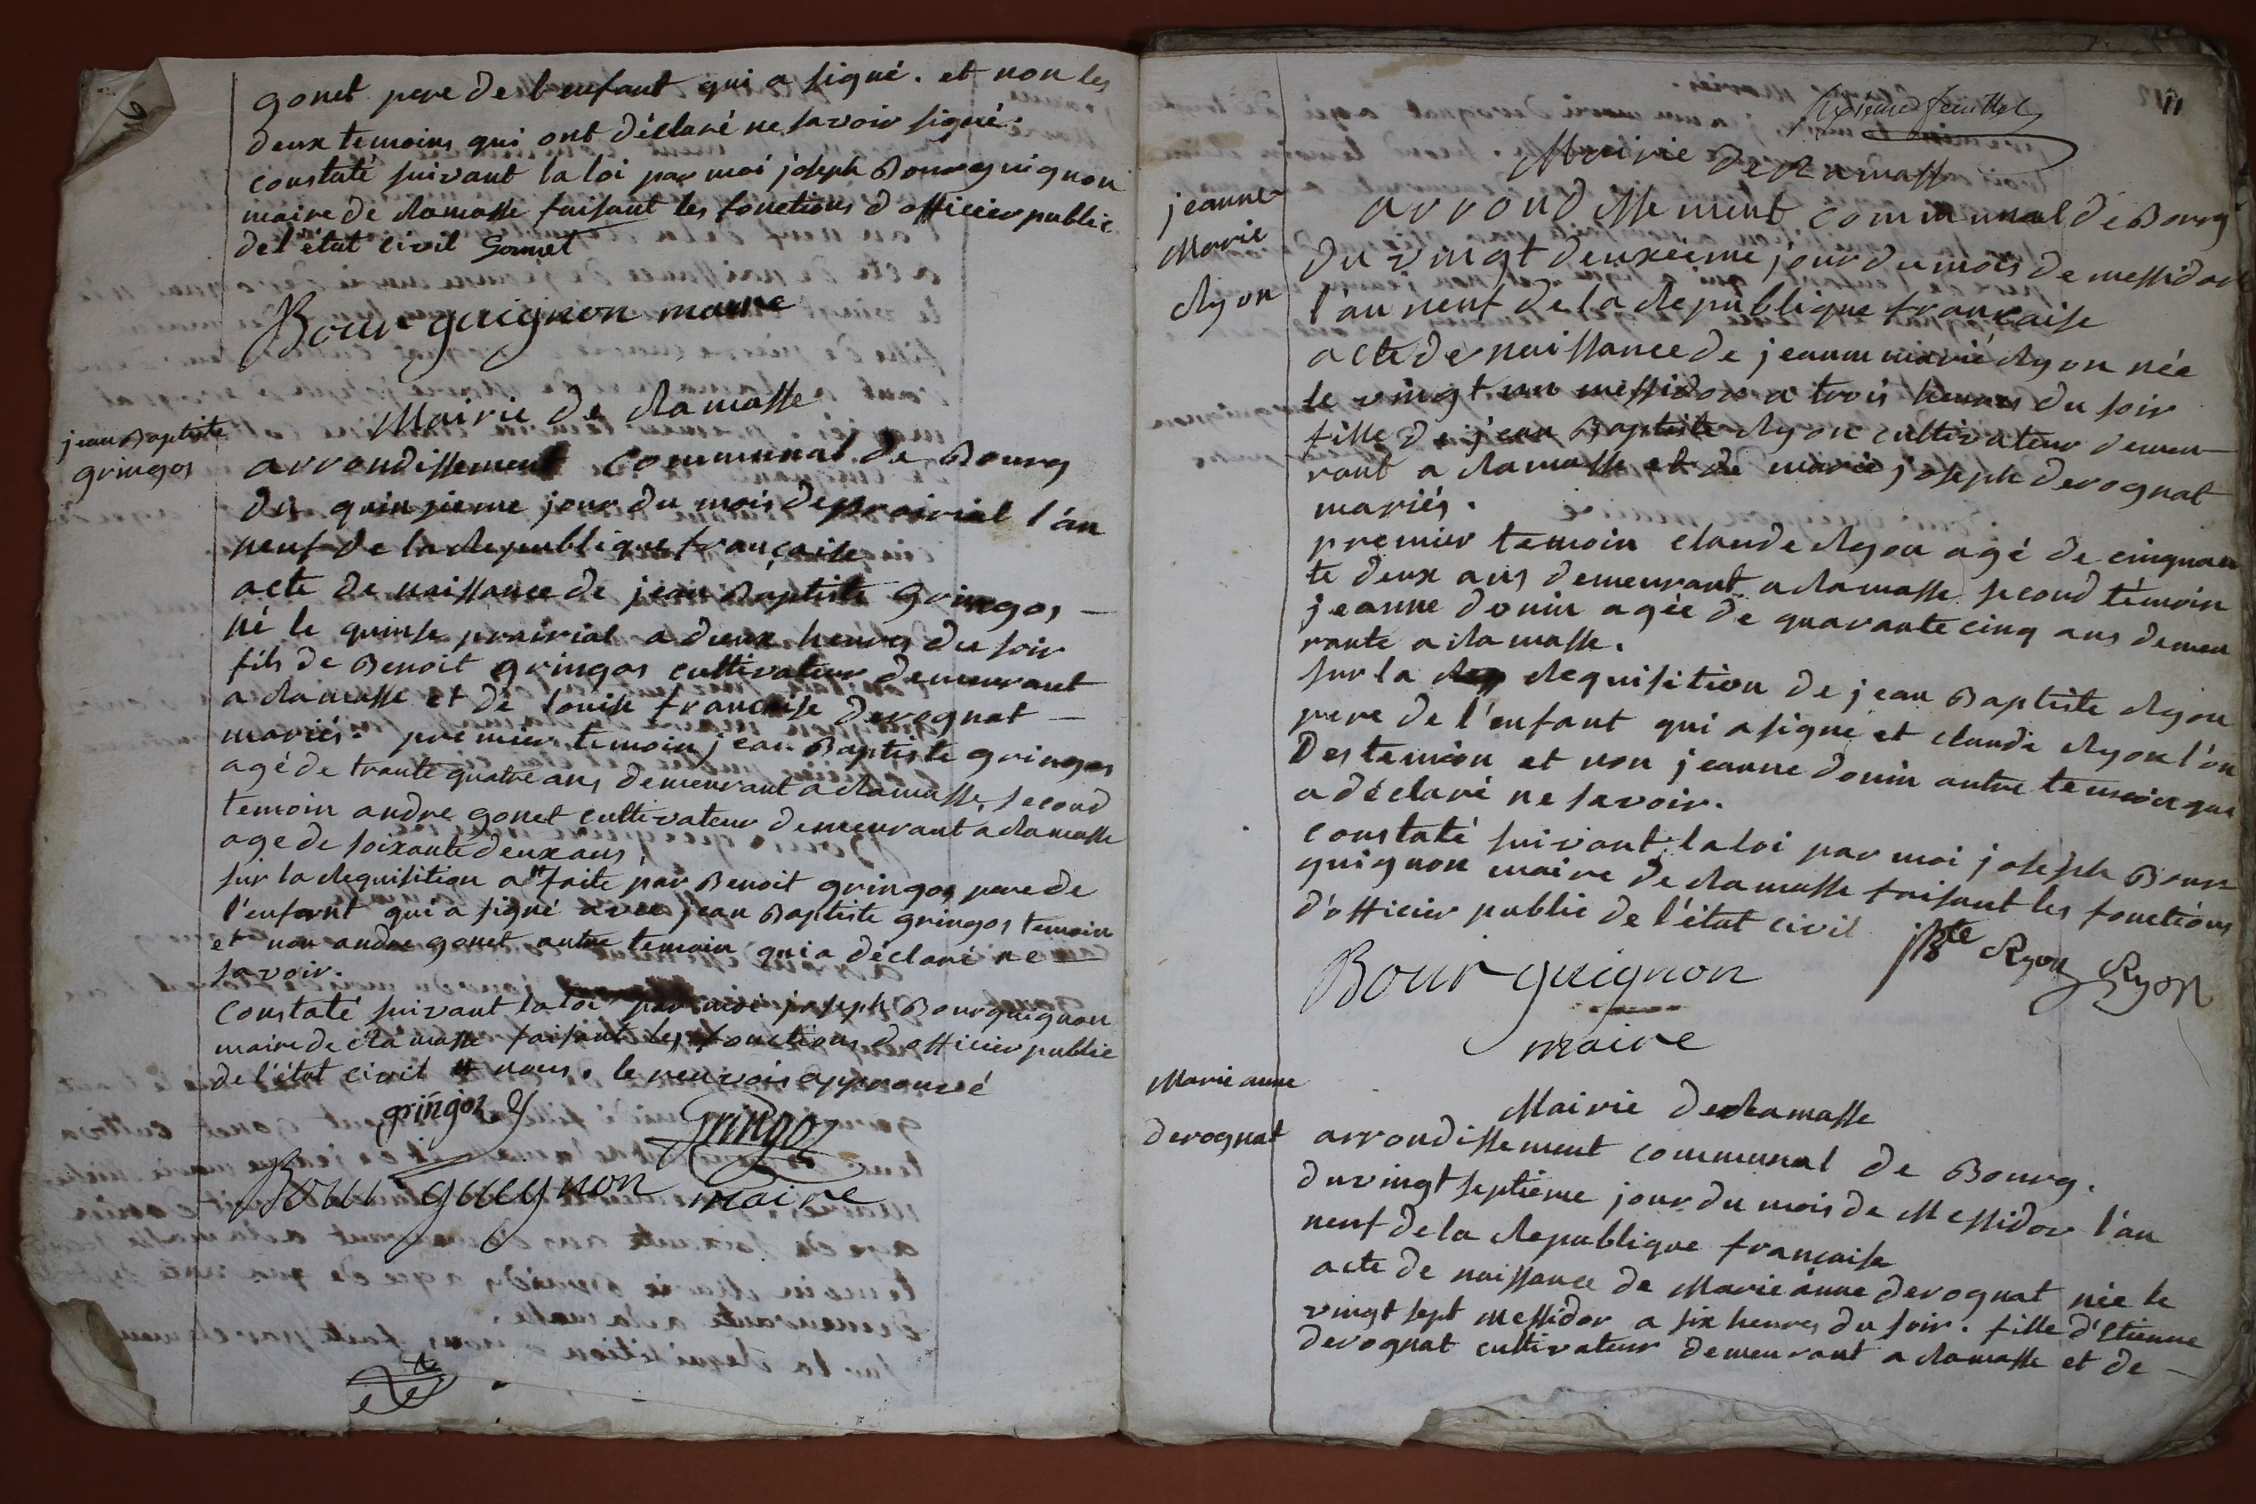 gonet pere de l'enfant qui a signé. et non les
deux temoins qui ont déclaré ne savoir signé.
constaté suivant la loi par moi joseph Bourguignon
maire de Ramasse faisant les fonctions d'officier public
de l'état civil Gonnet
Bourguignon maire
jean Baptiste
gringos
Mairie de Ramasse
arrondissement communal de Bourg
du quinzieme jour du mois de prairial l'an
neuf de la Republique française
acte de naissance de jean Baptiste Gringos -
né le quinse prairial a deux heures du soir
fils de Benoit gringos cultivateur demeurant
a Ramasse et de louise françoise derognat -
mariés. premier temoin jean Baptiste gringos
agé de trante quatre ans demeurant a Ramasse, second
temoin andre gonet cultivateur demeurant a Ramasse
age de soixante deux ans
sur la Requisition a # faite par Benoit gringos pere de
l'enfant qui a signé avec jean Baptiste gringos temoin
et non andre gonet autre temoin qui a déclaré ne -
savoir.
constaté suivant la loi par moi joseph Bourguignon
maire de Ramasse faisant les fonctions d'officier public
de l'état civil # nous. le renvois approuvé
gringoz
Gringoz
Bourguignon maire
11
sixieme feuillet
jeanne
Marie
Ryon
Mairie de Ramasse
arrondissement communal de Bourg
du vingt deuxeime jour du mois de messidor
l'an neuf de la Republique francaise
acte de naissance de jeanne marie Ryon née
le vingt un messidor a trois heures du soir
fille de jean Baptiste Ryon cultivateur demeu-
rant a Ramasse et de marie joseph derognat
mariés.
premier temoin claude Ryon agé de cinquan
te deux ans demeurant a Ramasse second témoin
jeanne donin agée de quarante cinq ans demeu
rante a Ramasse.
sur la Requisition de jean Baptiste Ryon
pere de l'enfant qui a signé et claude Ryon l'un
Des temoin et non jeanne donin autre temoin qui
a déclaré ne savoir.
constaté suivant la loi par moi joseph Bour
guignon maire de Ramasse faisant les fonctions
d'officier public de l'état civil
jBte Ryon Ryon
Bourguignon
maire
Marie anne
derognat
Mairie de Ramasse
arrondissement communal de Bourg.
du vingt septieme jour du mois de Messidor l'an
neuf de la Republique française
acte de naissance de Marie anne derognat née le
vingt sept Messidor a six heures du soir. fille d'Etienne
derognat cultivateur demeurant a Ramasse et de -